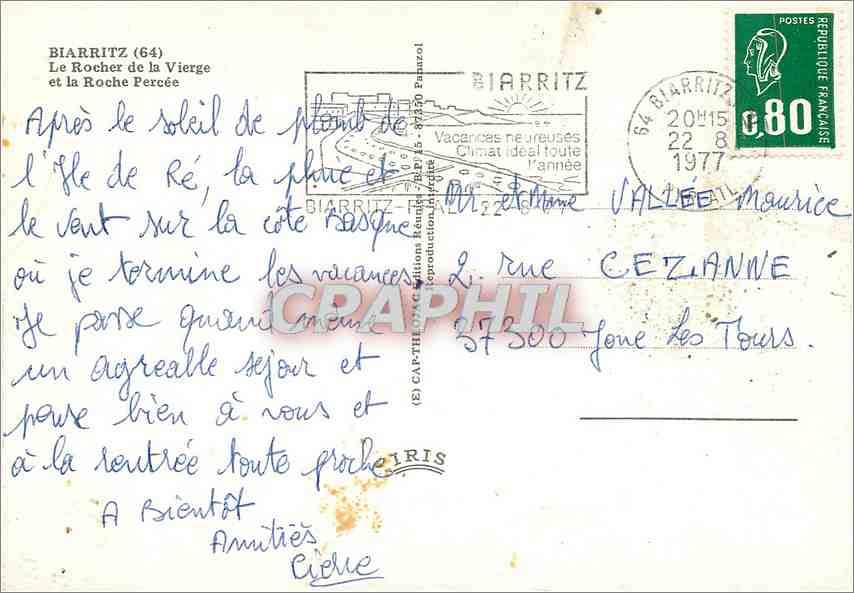 BIARRITZ (64)
Le Rocher de la Vierge
et la Roche Percée
Après le soleil de plomb de
l'Ile de Ré, la pluie et
le vent sur la côte Basque
où je termine les vacances.
Je passe quand même
un agréable séjour et
pense bien à vous et
à la rentrée toute proche
A Bientôt
Amitiés
(E) CAP-THEOJAC Editions Réunies - B.P. 15 - 87350 Panazol
Reproduction interdite
IRIS
BIARRITZ
Vacances heureuses
Climat idéal toute
l'année
64 BIARRITZ
20H15
22 8
1977
POSTES
REPUBLIQUE FRANÇAISE
0,80
Mr et Mme VALLEE Maurice
2 rue CEZANNE
37300 Joué Les Tours.
CPAPHIL